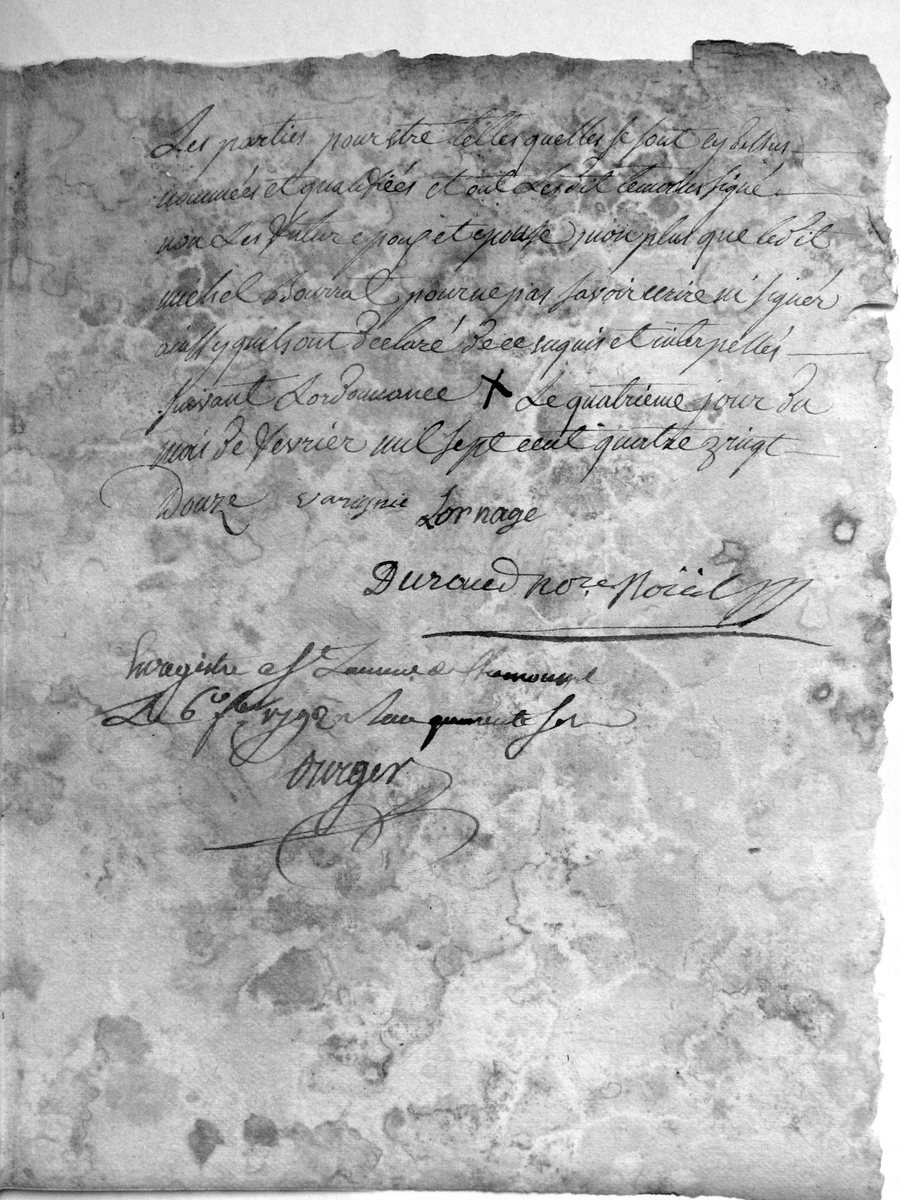 Les parties pour etre telles quelles se sont cy dessus
nommées et qualifiées et ont Lesdit temoins signé
non Les futurs epoux et epouse non plus que ledit
michel pour ne pas savoir ecrire ni signér
ainssy quils ont declaré de ce enquis et interpellés
suivant Lordonnance X Le quatrieme jour du
mois de fevrier mil sept cent quatre vingt
Douze Lornage
Durand nore Roiial
Enregistre a St de
Le 6e 1792